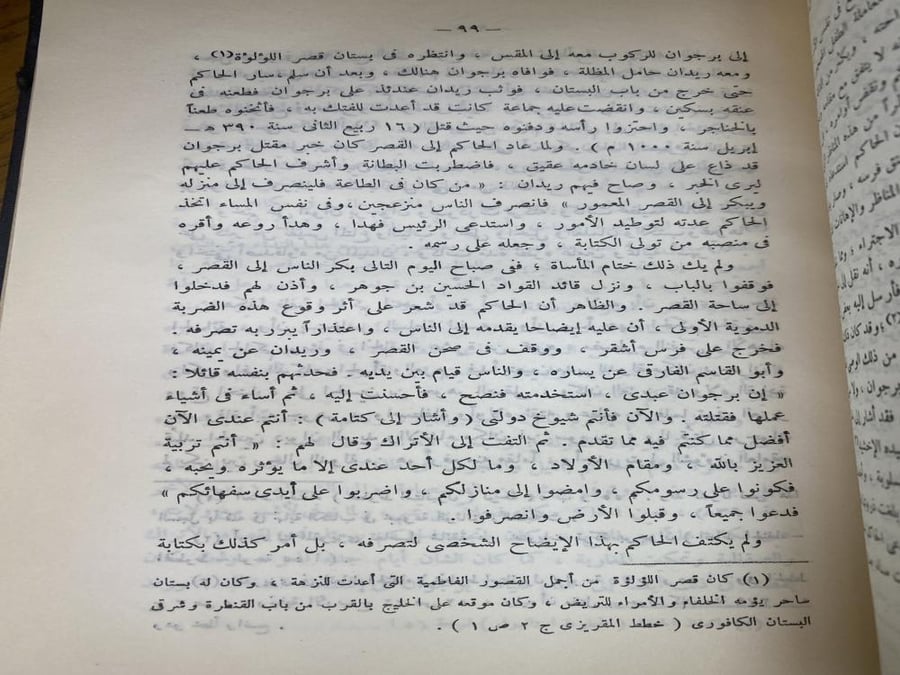 — ٩٩ —
إلى برجوان للركوب معه إلى المقس ، وانتظره فى بستان قصر اللؤلؤة(١) ،
ومعه ريدان حامل المظلة ، فوافاه برجوان هنالك ، وبعد أن سلم ، سار الحاكم
حتى خرج من باب البستان ، فوثب ريدان عندئذ على برجوان فطعنه فى
عنقه بسكين ، وانقضت عليه جماعة كانت قد أعدت للفتك به ، فأثخنوه طعناً
بالخناجر ، واحتزوا رأسه ودفنوه حيث قتل ( ١٦ ربيع الثانى سنة ٣٩٠ هـ —
إبريل سنة ١٠٠٠ م ) . ولما عاد الحاكم إلى القصر كان خبر مقتل برجوان
قد ذاع على لسان خادمه عقيق ، فاضطربت البطانة وأشرف الحاكم عليهم
ليرى الخبر ، وصاح فيهم ريدان : « من كان فى الطاعة فلينصرف إلى منزله
ويبكر إلى القصر المعمور » فانصرف الناس منزعجين ، وفى نفس المساء اتخذ
الحاكم عدته لتوطيد الأمور ، واستدعى الرئيس فهدا ، وهدأ روعه وأقره
فى منصبه من تولى الكتابة ، وجعله على رسمه .
ولم يك ذلك ختام المأساة ؛ ففى صباح اليوم التالى بكر الناس إلى القصر ،
فوقفوا بالباب ، ونزل قائد القواد الحسين بن جوهر ، وأذن لهم فدخلوا
إلى ساحة القصر . والظاهر أن الحاكم قد شعر على أثر وقوع هذه الضربة
الدموية الأولى ، أن عليه إيضاحا يقدمه إلى الناس ، واعتذاراً يبرر به تصرفه .
فخرج على فرس أشقر ، ووقف فى صحن القصر ، وريدان عن يمينه ،
وأبو القاسم الفارقى عن يساره ، والناس قيام بين يديه . فحدثهم بنفسه قائلا :
« إن برجوان عبدى ، استخدمته فنصح ، فأحسنت إليه ، ثم أساء فى أشياء
عملها فقتلته . والآن فأنتم شيوخ دولتى ( وأشار إلى كتامة ) : أنتم عندى الآن
أفضل مما كنتم فيه مما تقدم . ثم التفت إلى الأتراك وقال لهم : « أنتم تربية
العزيز بالله ، ومقام الأولاد ، وما لكل أحد عندى إلا ما يؤثره ويحبه ،
فكونوا على رسومكم ، وامضوا إلى منازلكم ، واضربوا على أيدى سفهائكم »
فدعوا جميعاً ، وقبلوا الأرض وانصرفوا .
ولم يكتف الحاكم بهذا الإيضاح الشخصى لتصرفه ، بل أمر كذلك بكتابة
(١) كان قصر اللؤلؤة من أجمل القصور الفاطمية التى أعدت للنزهة ، وكان له بستان
ساحر يؤمه الخلفاء والأمراء للتريض ، وكان موقعه على الخليج بالقرب من باب القنطرة وشرق
البستان الكافورى ( خطط المقريزى ج ٢ ص ١ ) .